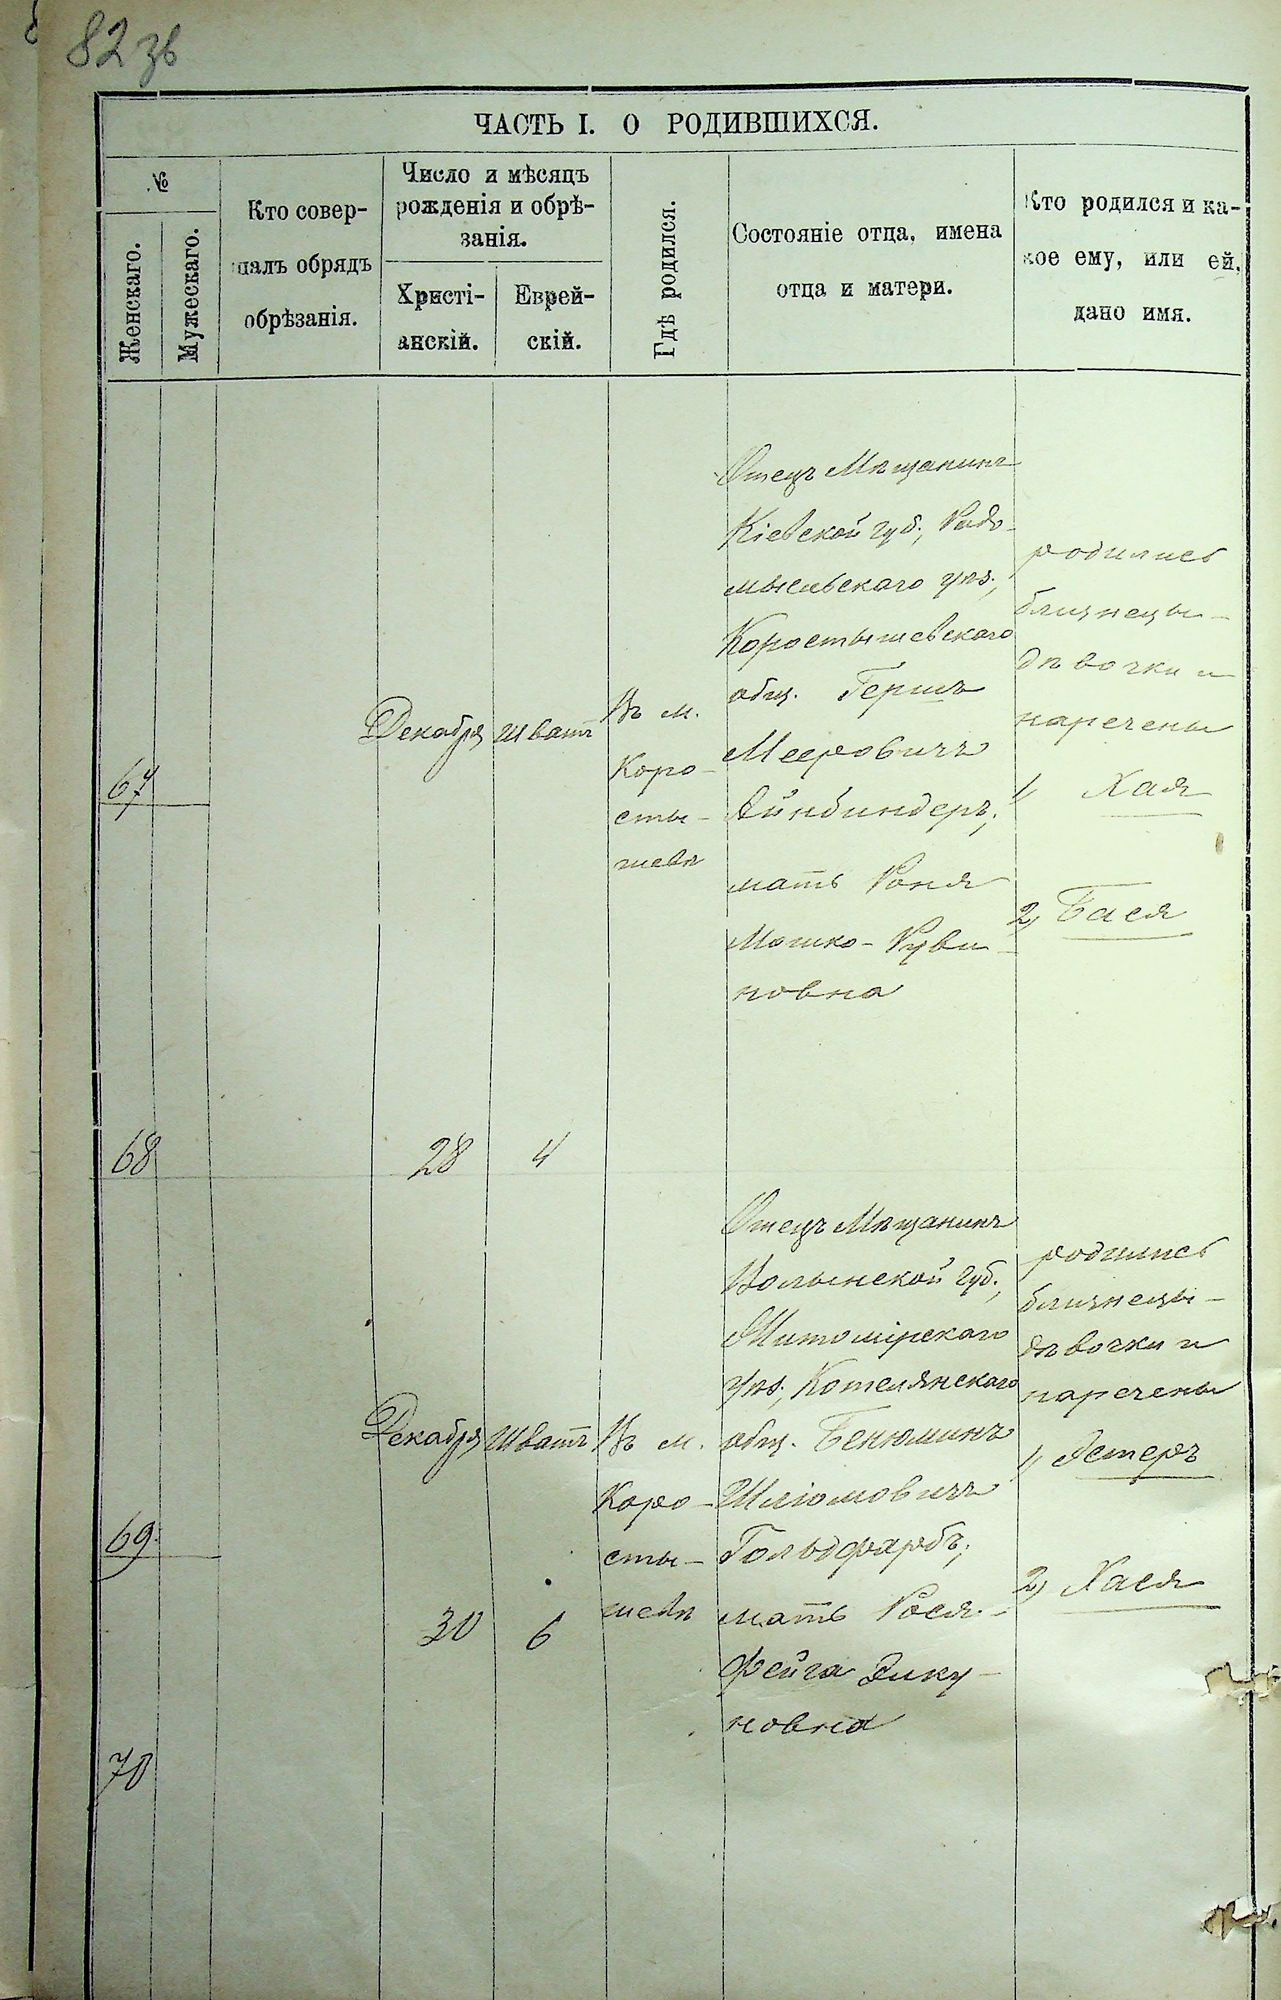 82 зв
ЧАСТЬ I. О РОДИВШИХСЯ.
№
Женскаго.
Мужескаго.
Кто совер-
шалъ обрядъ
обрѣзанія.
Число и мѣсяцъ
рожденія и обрѣ-
занія.
Христі-
анскій.
Еврей-
скій.
Гдѣ родился.
Состояніе отца, имена
отца и матери.
Кто родился и ка-
кое ему, или ей,
дано имя.
67
68
Декабря
28
Шватъ
4
Въ м.
Коро-
сты-
шевѣ
Отецъ Мѣщанинъ
Кіевской губ., Радо-
мысльскаго уѣз.,
Коростышевскаго
общ. Гершъ
Мееровичъ
Айнбиндеръ;
мать Роня
Мошко-Руви-
новна
родились
близнецы-
дѣвочки и
наречены
1) Хая
2) Бася
69
70
Декабря
30
Шватъ
6
Въ м.
Коро-
сты-
шевѣ
Отецъ Мѣщанинъ
Волынской губ.,
Житомірскаго
уѣз., Котелянскаго
общ. Бенюминъ
Шліомовичъ
Гольдфарбъ;
мать Рося-
Фейга Зику-
новна
родились
близнецы-
дѣвочки и
наречены
1) Эстеръ
2) Хася